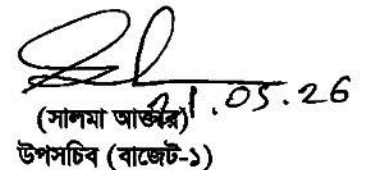 21.05.26
(সালমা আক্তার)
উপসচিব (বাজেট-১)